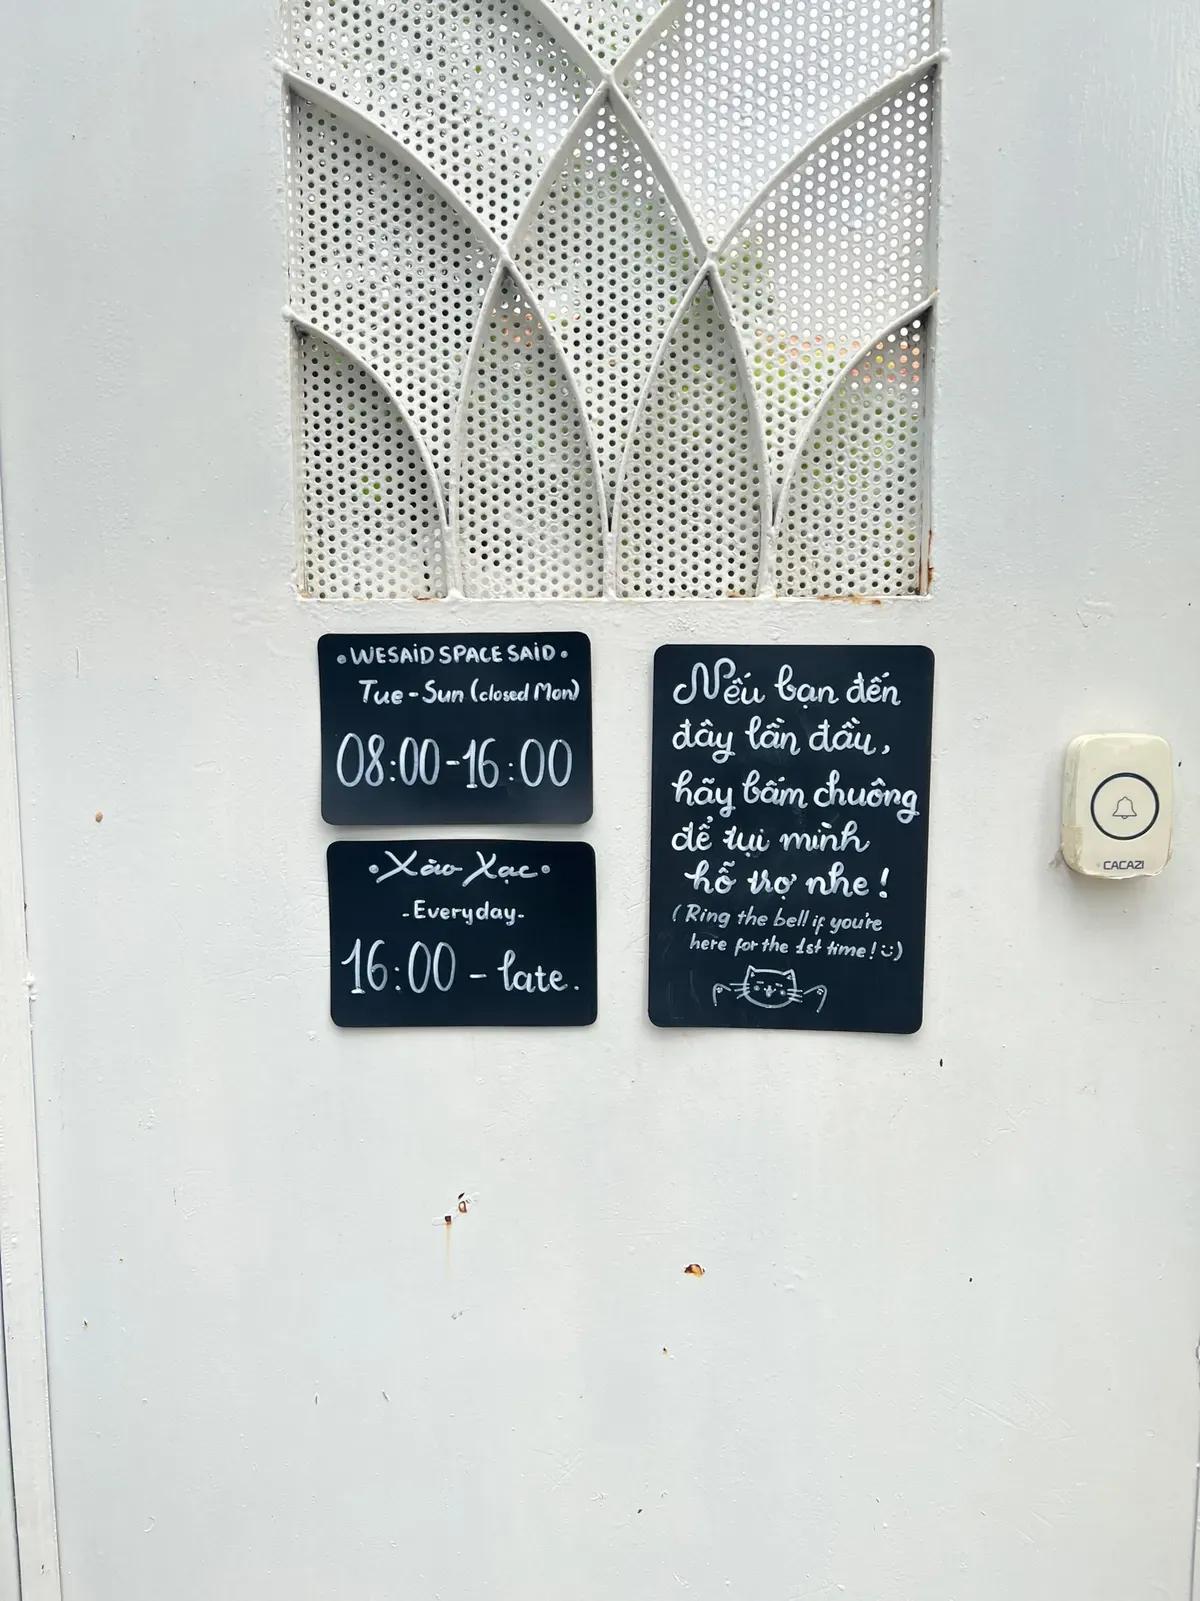 • WESAiD SPACE SAiD •
Tue - Sun (closed Mon)
08:00 - 16:00
• Xào Xạc •
- Everyday -
16:00 - late.
Nếu bạn đến
đây lần đầu,
hãy bấm chuông
để tụi mình
hỗ trợ nhe!
(Ring the bell if you're
here for the 1st time! :))
CACAZI